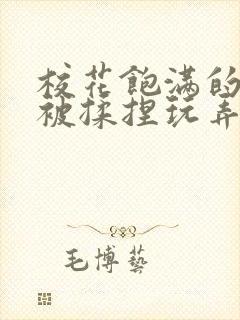 校花飽满的
被揉捏玩弄
毛博藝